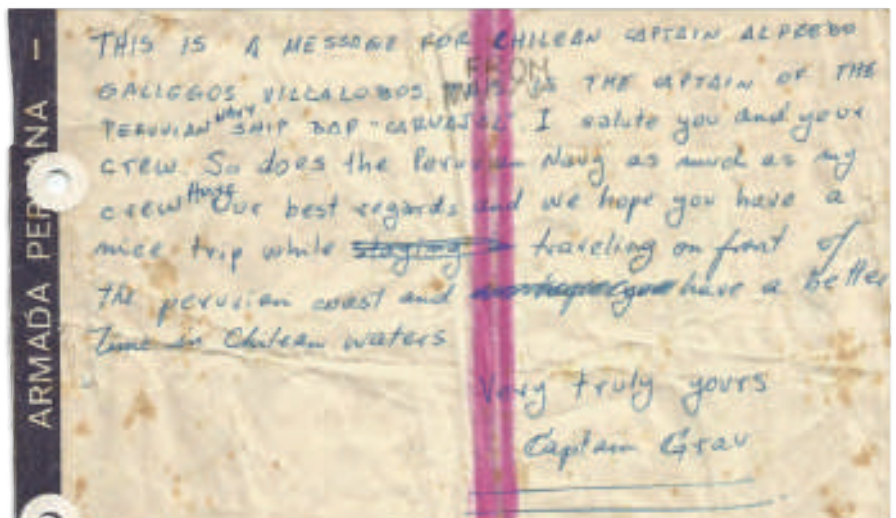 ARMADA PERUANA —
THIS IS A MESSAGE FOR CHILEAN CAPTAIN ALFREDO
FROM
GALLEGOS VILLALOBOS THIS IS THE CAPTAIN OF THE
PERUVIAN NAVY SHIP BAP "CARVAJAL" I salute you and your
crew. So does the Peruvian Navy as much as my
crew. Have Our best regards and we hope you have a
nice trip while staying traveling on front of
THE peruvian coast and have a better
Time in Chilean waters
Very truly yours
Captain Grau